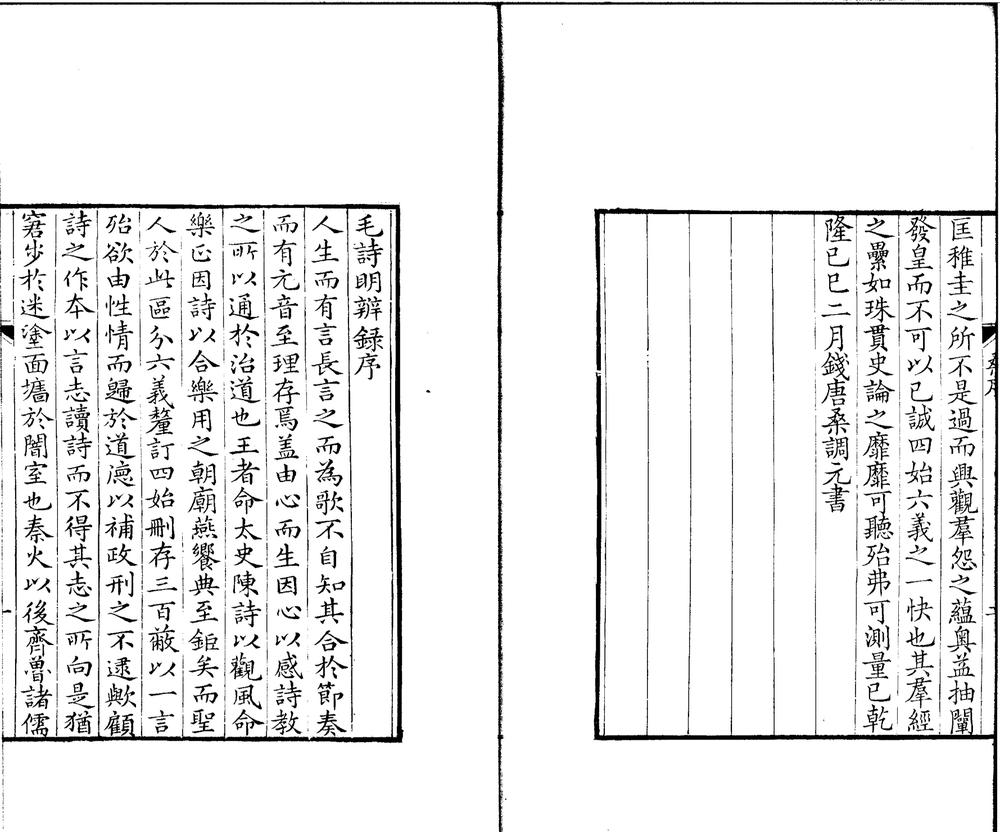 匡稚圭之所不是過而興觀羣怨之蘊奥益抽闡
發皇而不可以已誠四始六義之一快也其羣經
之纍如珠貫史論之靡靡可聽殆弗可測量已乾
隆已巳二月錢唐桑調元書
毛詩明辨錄序
人生而有言長言之而為歌不自知其合於節奏
而有元音至理存焉盖由心而生因心以感詩教
之所以通於治道也王者命太史陳詩以觀風命
樂正因詩以合樂用之朝廟燕饗典至鉅矣而聖
人於此區分六義釐訂四始刪存三百蔽以一言
殆欲由性情而歸於道德以補政刑之不逮歟顧
詩之作本以言志讀詩而不得其志之所向是猶
窘步於迷塗面牆於闇室也秦火以後齊魯諸儒